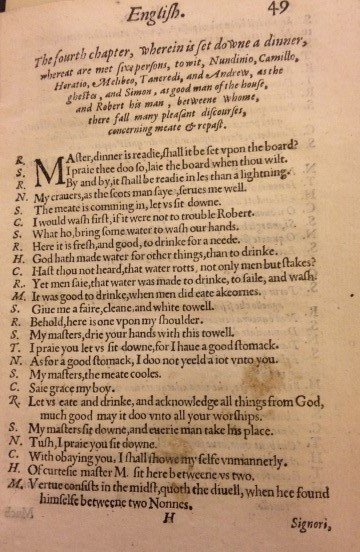 English. 49
The fourth chapter, wherein is set downe a dinner,
whereat are met sixe persons, to wit, Nundinio, Camillo,
Horatio, Melibeo, Tancredi, and Andrew, as the
ghestes, and Simon, as good man of the house,
and Robert his man, betweene whome,
there fall many pleasant discourses,
concerning meate & repast.
R. MAster, dinner is readie, shall it be set vpon the board?
S. I praie thee doo so, laie the board when thou wilt.
R. By and by, it shall be readie in les than a lightning.
N. My crauers, as the scots man saye, serues me well.
S. The meate is comming in, let vs sit downe.
C. I would wash first, if it were not to trouble Robert.
S. What ho, bring some water to wash our hands.
R. Here it is fresh, and good, to drinke for a neede.
H. God hath made water for other things, than to drinke.
C. Hast thou not heard, that water rotts, not only men but stakes?
R. Yet men saie, that water was made to drinke, to saile, and wash.
M. It was good to drinke, when men did eate akeornes.
S. Giue me a faire, cleane, and white towell.
R. Behold, here is one vpon my shoulder.
S. My masters, drie your hands with this towell.
T. I praie you let vs sit downe, for I haue a good stomack.
N. As for a good stomack, I doo not yeeld a iot vnto you.
S. My masters, the meate cooles.
C. Saie grace my boy.
R. Let vs eate and drinke, and acknowledge all things from God,
much good may it doo vnto all your worships.
S. My masters sit downe, and euerie man take his place.
N. Tush, I praie you sit downe.
C. With obaying you, I shall showe my selfe vnmannerly.
H. Of curtesie master M. sit here betweene vs two.
M. Vertue consists in the midst, quoth the diuell, when hee found
himselfe betweene two Nonnes.
H Signori,